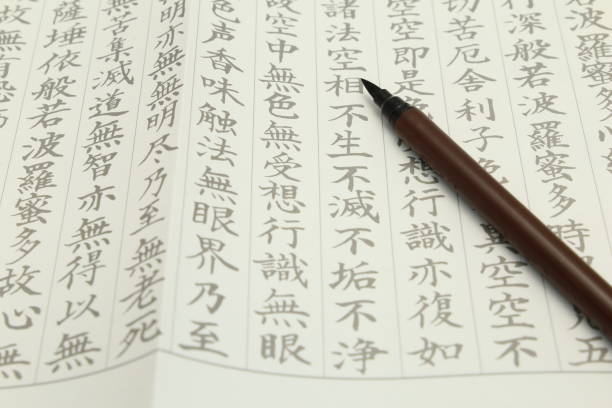 若波羅蜜多心
行深般若波羅蜜多時見五
切苦厄舎利子色異空空不
空空即是色想行識亦復如
諸法空相不生不滅不垢不浄
故空中無色無受想行識無眼
色声香味触法無眼界乃至
明亦無無明尽乃至無老死
無苦集滅道無智亦無得以無
薩埵依般若波羅蜜多故心無
故無有恐